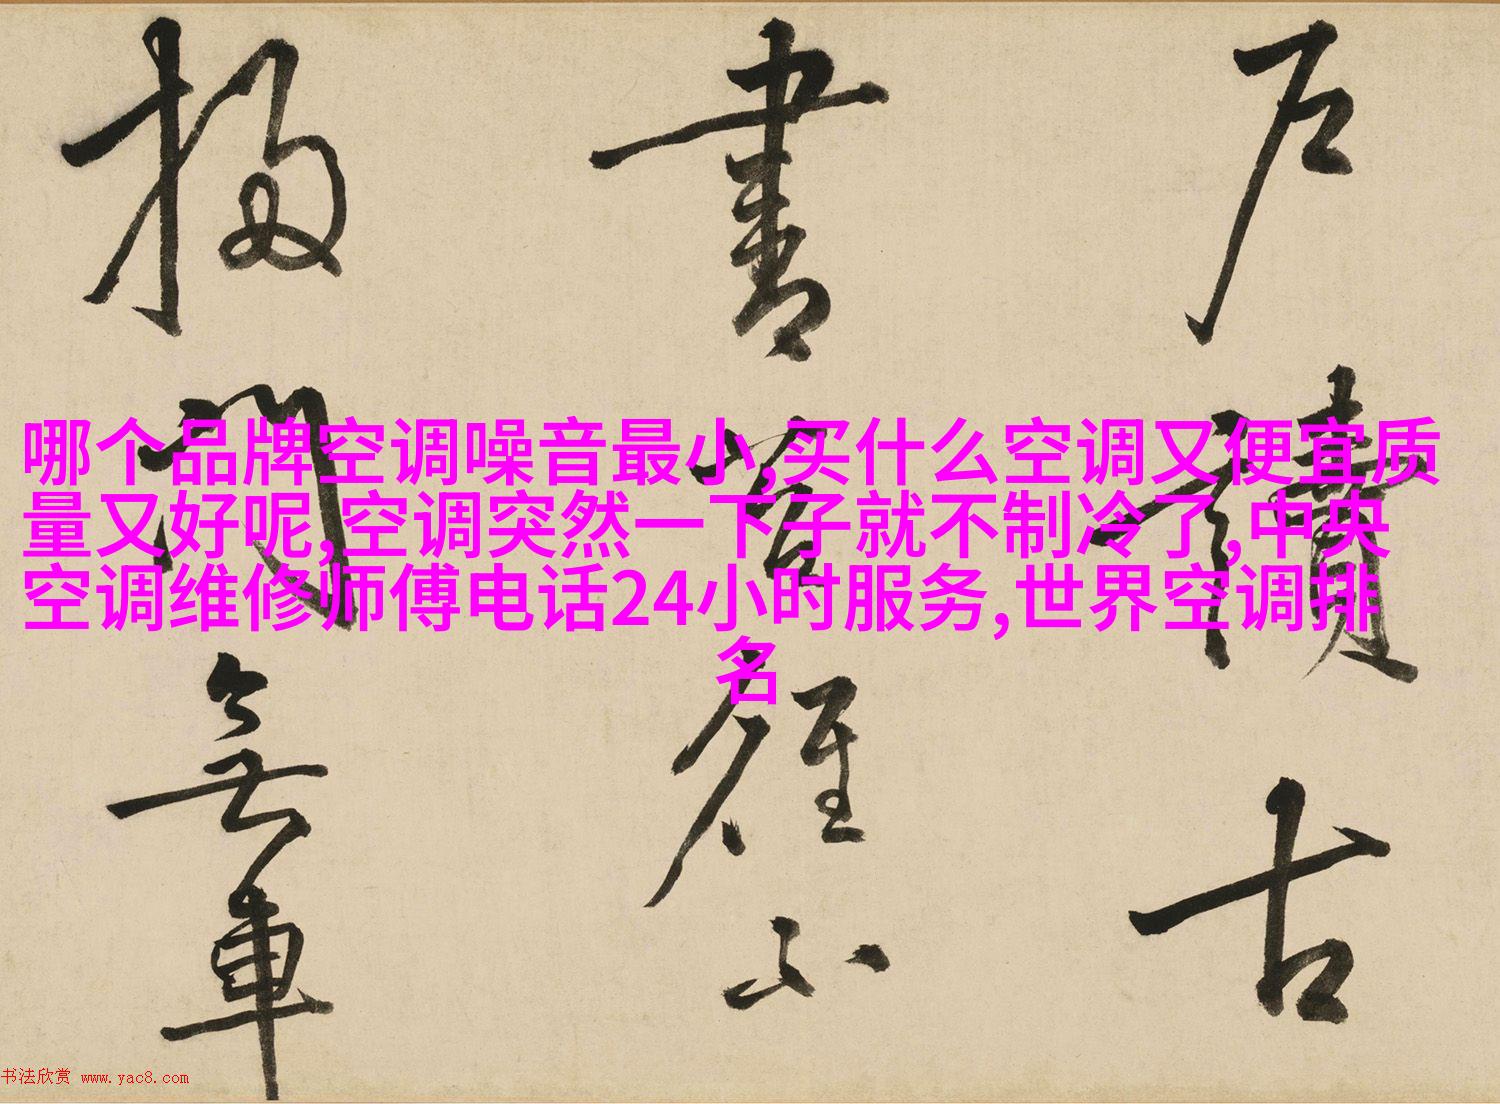 哪个品牌空调噪音最小,买什么空调又便宜质
量又好呢,空调突然一下子就不制冷了,中央
空调维修师傅电话24小时服务,世界空调排
名
户 古
書 不
門無車
书法欣赏 www.yac8.com